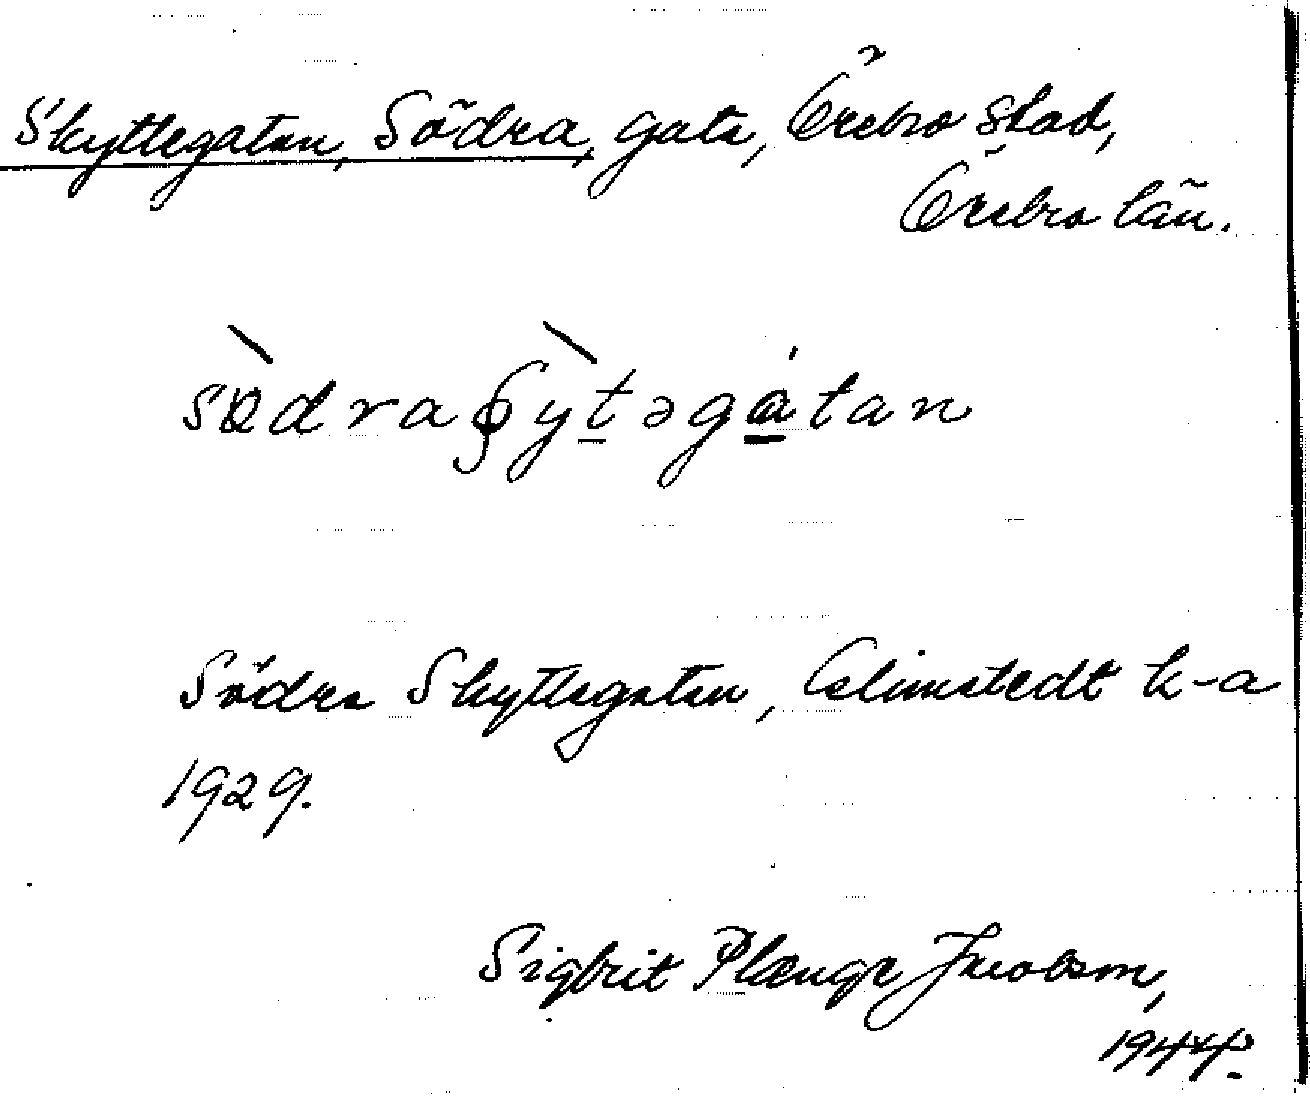 Skyttegatan, Södra, gata, Örebro stad,
Örebro län.
sødra ʂytəgatan
Södra Skyttegatan, Celimstedt k-a
1929.
Sigbrit Plænge Jacobson,
1944.